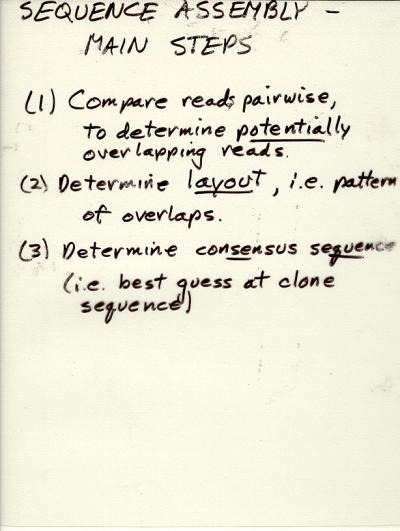 SEQUENCE ASSEMBLY -
MAIN STEPS
(1) Compare reads pairwise,
to determine potentially
overlapping reads.
(2) Determine layout, i.e. pattern
of overlaps.
(3) Determine consensus sequence
(i.e. best guess at clone
sequence)